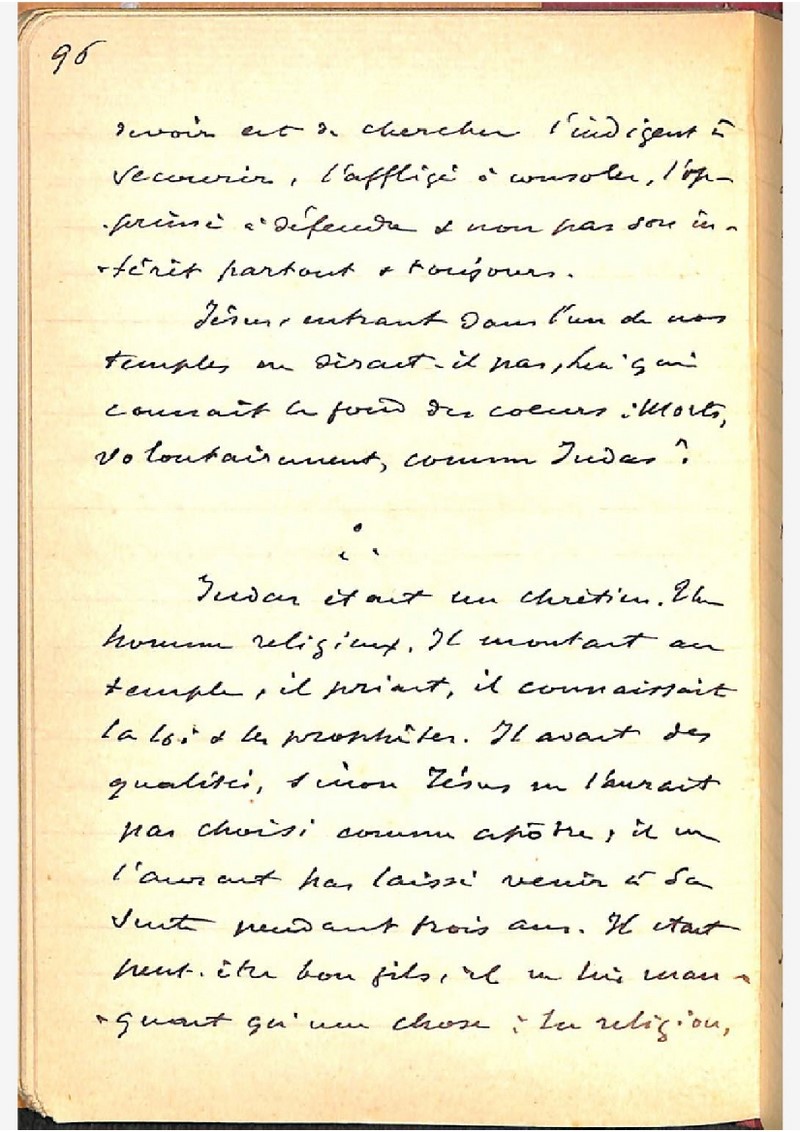 96
devoir est de chercher l'indigent à
secourir, l'affligé à consoler, l'op-
-primé à défendre & non pas son in-
-térêt partout & toujours.
Jésus, entrant dans l'un de nos
temples ne dirait-il pas, lui qui
connaît le fond des coeurs : Morts,
volontairement, comme Judas ?
Judas était un chrétien. Un
homme religieux. Il montait au
temple, il priait, il connaissait
la loi & les prophètes. Il avait des
qualités, sinon Jésus ne l'aurait
pas choisi comme apôtre, il ne
l'aurait pas laissé venir à sa
suite pendant trois ans. Il était
peut-être bon fils, il ne lui man-
-quait qu'une chose : la religion,